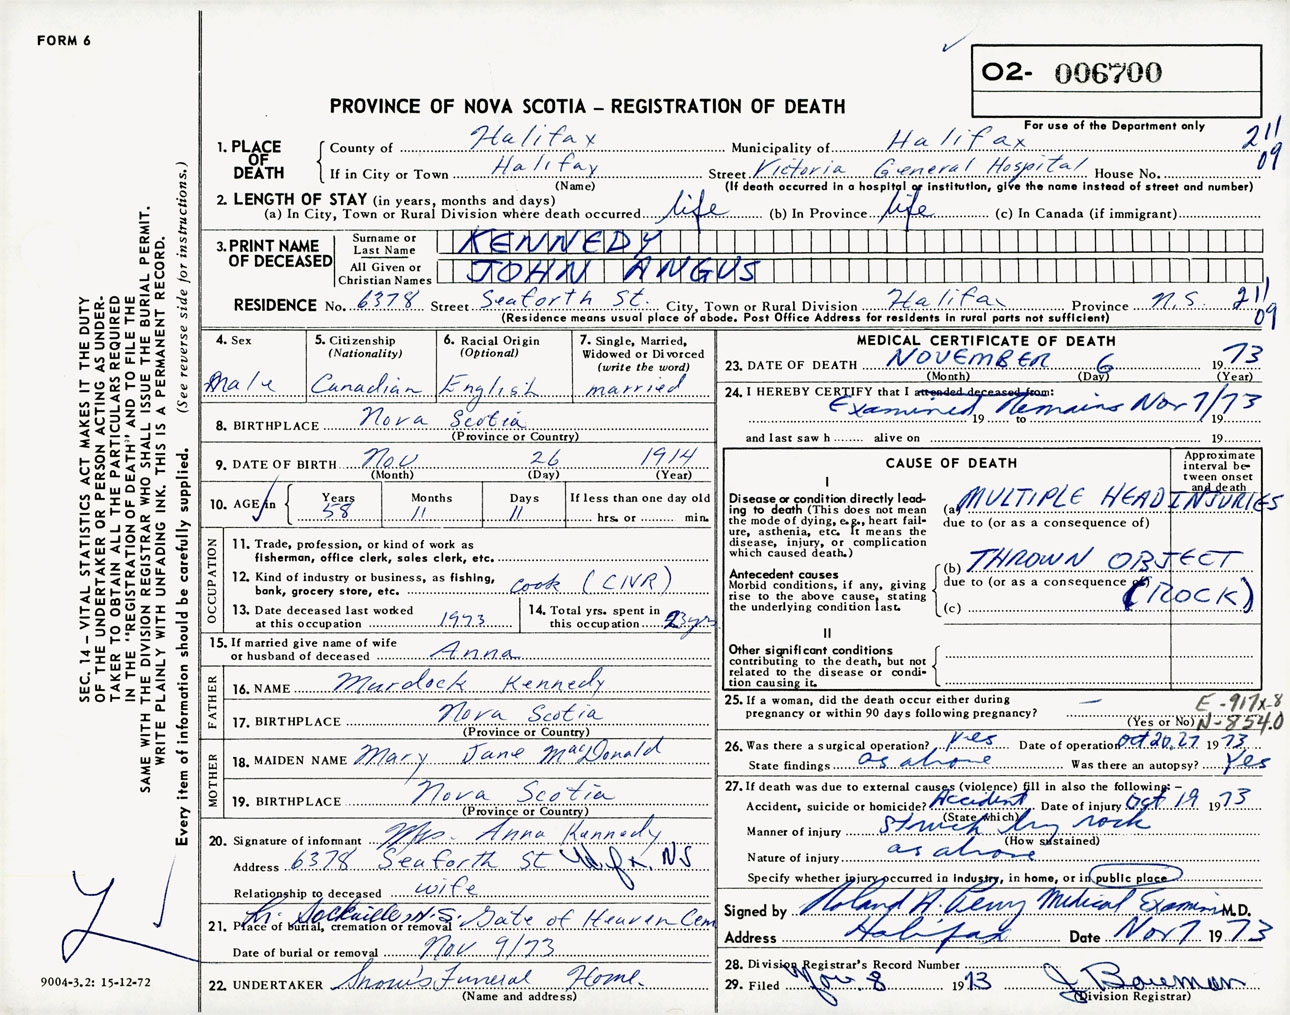 FORM 6
O2- 006700
PROVINCE OF NOVA SCOTIA – REGISTRATION OF DEATH
For use of the Department only
SEC. 14 – VITAL STATISTICS ACT MAKES IT THE DUTY
OF THE UNDERTAKER OR PERSON ACTING AS UNDER-
TAKER TO OBTAIN ALL THE PARTICULARS REQUIRED
IN THE "REGISTRATION OF DEATH" AND TO FILE THE
SAME WITH THE DIVISION REGISTRAR WHO SHALL ISSUE THE BURIAL PERMIT.
WRITE PLAINLY WITH UNFADING INK. THIS IS A PERMANENT RECORD.
Every item of information should be carefully supplied. (See reverse side for instructions.)
1. PLACE OF DEATH
County of Halifax Municipality of Halifax 211
If in City or Town Halifax Street Victoria General Hospital House No. 09
(Name) (If death occurred in a hospital or institution, give the name instead of street and number)
2. LENGTH OF STAY (in years, months and days)
(a) In City, Town or Rural Division where death occurred life (b) In Province life (c) In Canada (if immigrant)
3. PRINT NAME OF DECEASED
Surname or Last Name KENNEDY
All Given or Christian Names JOHN ANGUS
RESIDENCE No. 6378 Street Seaforth St. City, Town or Rural Division Halifax Province N.S. 211
(Residence means usual place of abode. Post Office Address for residents in rural parts not sufficient) 09
4. Sex
Male
5. Citizenship
(Nationality)
Canadian
6. Racial Origin
(Optional)
English
7. Single, Married,
Widowed or Divorced
(write the word)
married
8. BIRTHPLACE Nova Scotia
(Province or Country)
9. DATE OF BIRTH Nov 26 1914
(Month) (Day) (Year)
10. AGE in Years Months Days If less than one day old
58 11 11 hrs. or min.
OCCUPATION
11. Trade, profession, or kind of work as
fisherman, office clerk, sales clerk, etc.
12. Kind of industry or business, as fishing,
bank, grocery store, etc. cook (CNR)
13. Date deceased last worked
at this occupation 1973
14. Total yrs. spent in
this occupation 23 yrs
15. If married give name of wife
or husband of deceased Anna
FATHER
16. NAME Murdock Kennedy
17. BIRTHPLACE Nova Scotia
(Province or Country)
MOTHER
18. MAIDEN NAME Mary Jane MacDonald
19. BIRTHPLACE Nova Scotia
(Province or Country)
20. Signature of informant Mrs. Anna Kennedy
Address 6378 Seaforth St Hfx. NS
Relationship to deceased wife
21. Place of burial, cremation or removal Lr. Sackville N.S. Gate of Heaven Cem
Date of burial or removal Nov 9/73
22. UNDERTAKER Snow's Funeral Home.
(Name and address)
9004-3.2: 15-12-72
MEDICAL CERTIFICATE OF DEATH
23. DATE OF DEATH NOVEMBER 6 1973
(Month) (Day) (Year)
24. I HEREBY CERTIFY that I attended deceased from:
Examined remains Nov 7/73
19 to 19
and last saw h alive on 19
CAUSE OF DEATH
Approximate
interval be-
tween onset
and death
I
Disease or condition directly lead-
ing to death (This does not mean
the mode of dying, e.g., heart fail-
ure, asthenia, etc. It means the
disease, injury, or complication
which caused death.)
(a) MULTIPLE HEAD INJURIES
due to (or as a consequence of)
Antecedent causes
Morbid conditions, if any, giving
rise to the above cause, stating
the underlying condition last.
(b) THROWN OBJECT
due to (or as a consequence of)
(c) (ROCK)
II
Other significant conditions
contributing to the death, but not
related to the disease or condi-
tion causing it.
25. If a woman, did the death occur either during
pregnancy or within 90 days following pregnancy? –
(Yes or No)
E-917x-8
N-854.0
26. Was there a surgical operation? Yes Date of operation Oct 20, 27 1973
State findings as above Was there an autopsy? Yes
27. If death was due to external causes (violence) fill in also the following:–
Accident, suicide or homicide? Accident Date of injury Oct 19 1973
(State which)
Manner of injury Struck by rock
(How sustained)
Nature of injury as above
Specify whether injury occurred in industry, in home, or in public place
Signed by Roland H. Perry Medical Examiner M.D.
Address Halifax Date Nov 7 1973
28. Division Registrar's Record Number
29. Filed Nov. 8 1973 J Bowman
(Division Registrar)